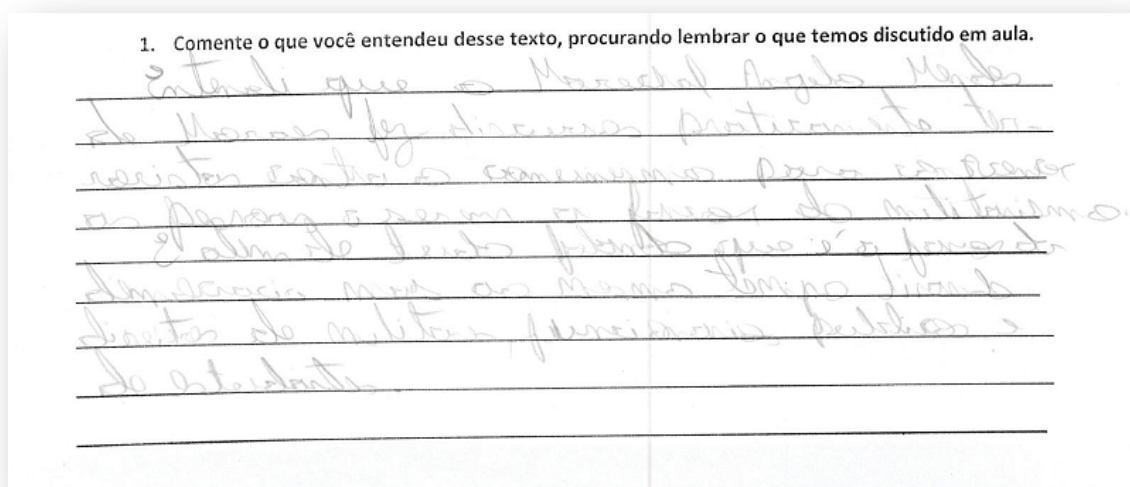 1. Comente o que você entendeu desse texto, procurando lembrar o que temos discutido em aula.
Entendi que o Marechal Angelo Mendes
de Moraes fez discursos praticamente ter-
roristas contra o comunismo para
as pessoas a serem a favor do militarismo.
E alem de tudo que é a favor da
democracia mas ao mesmo tempo tirando
direitos de militares, funcionarios publicos e
de estudantes.